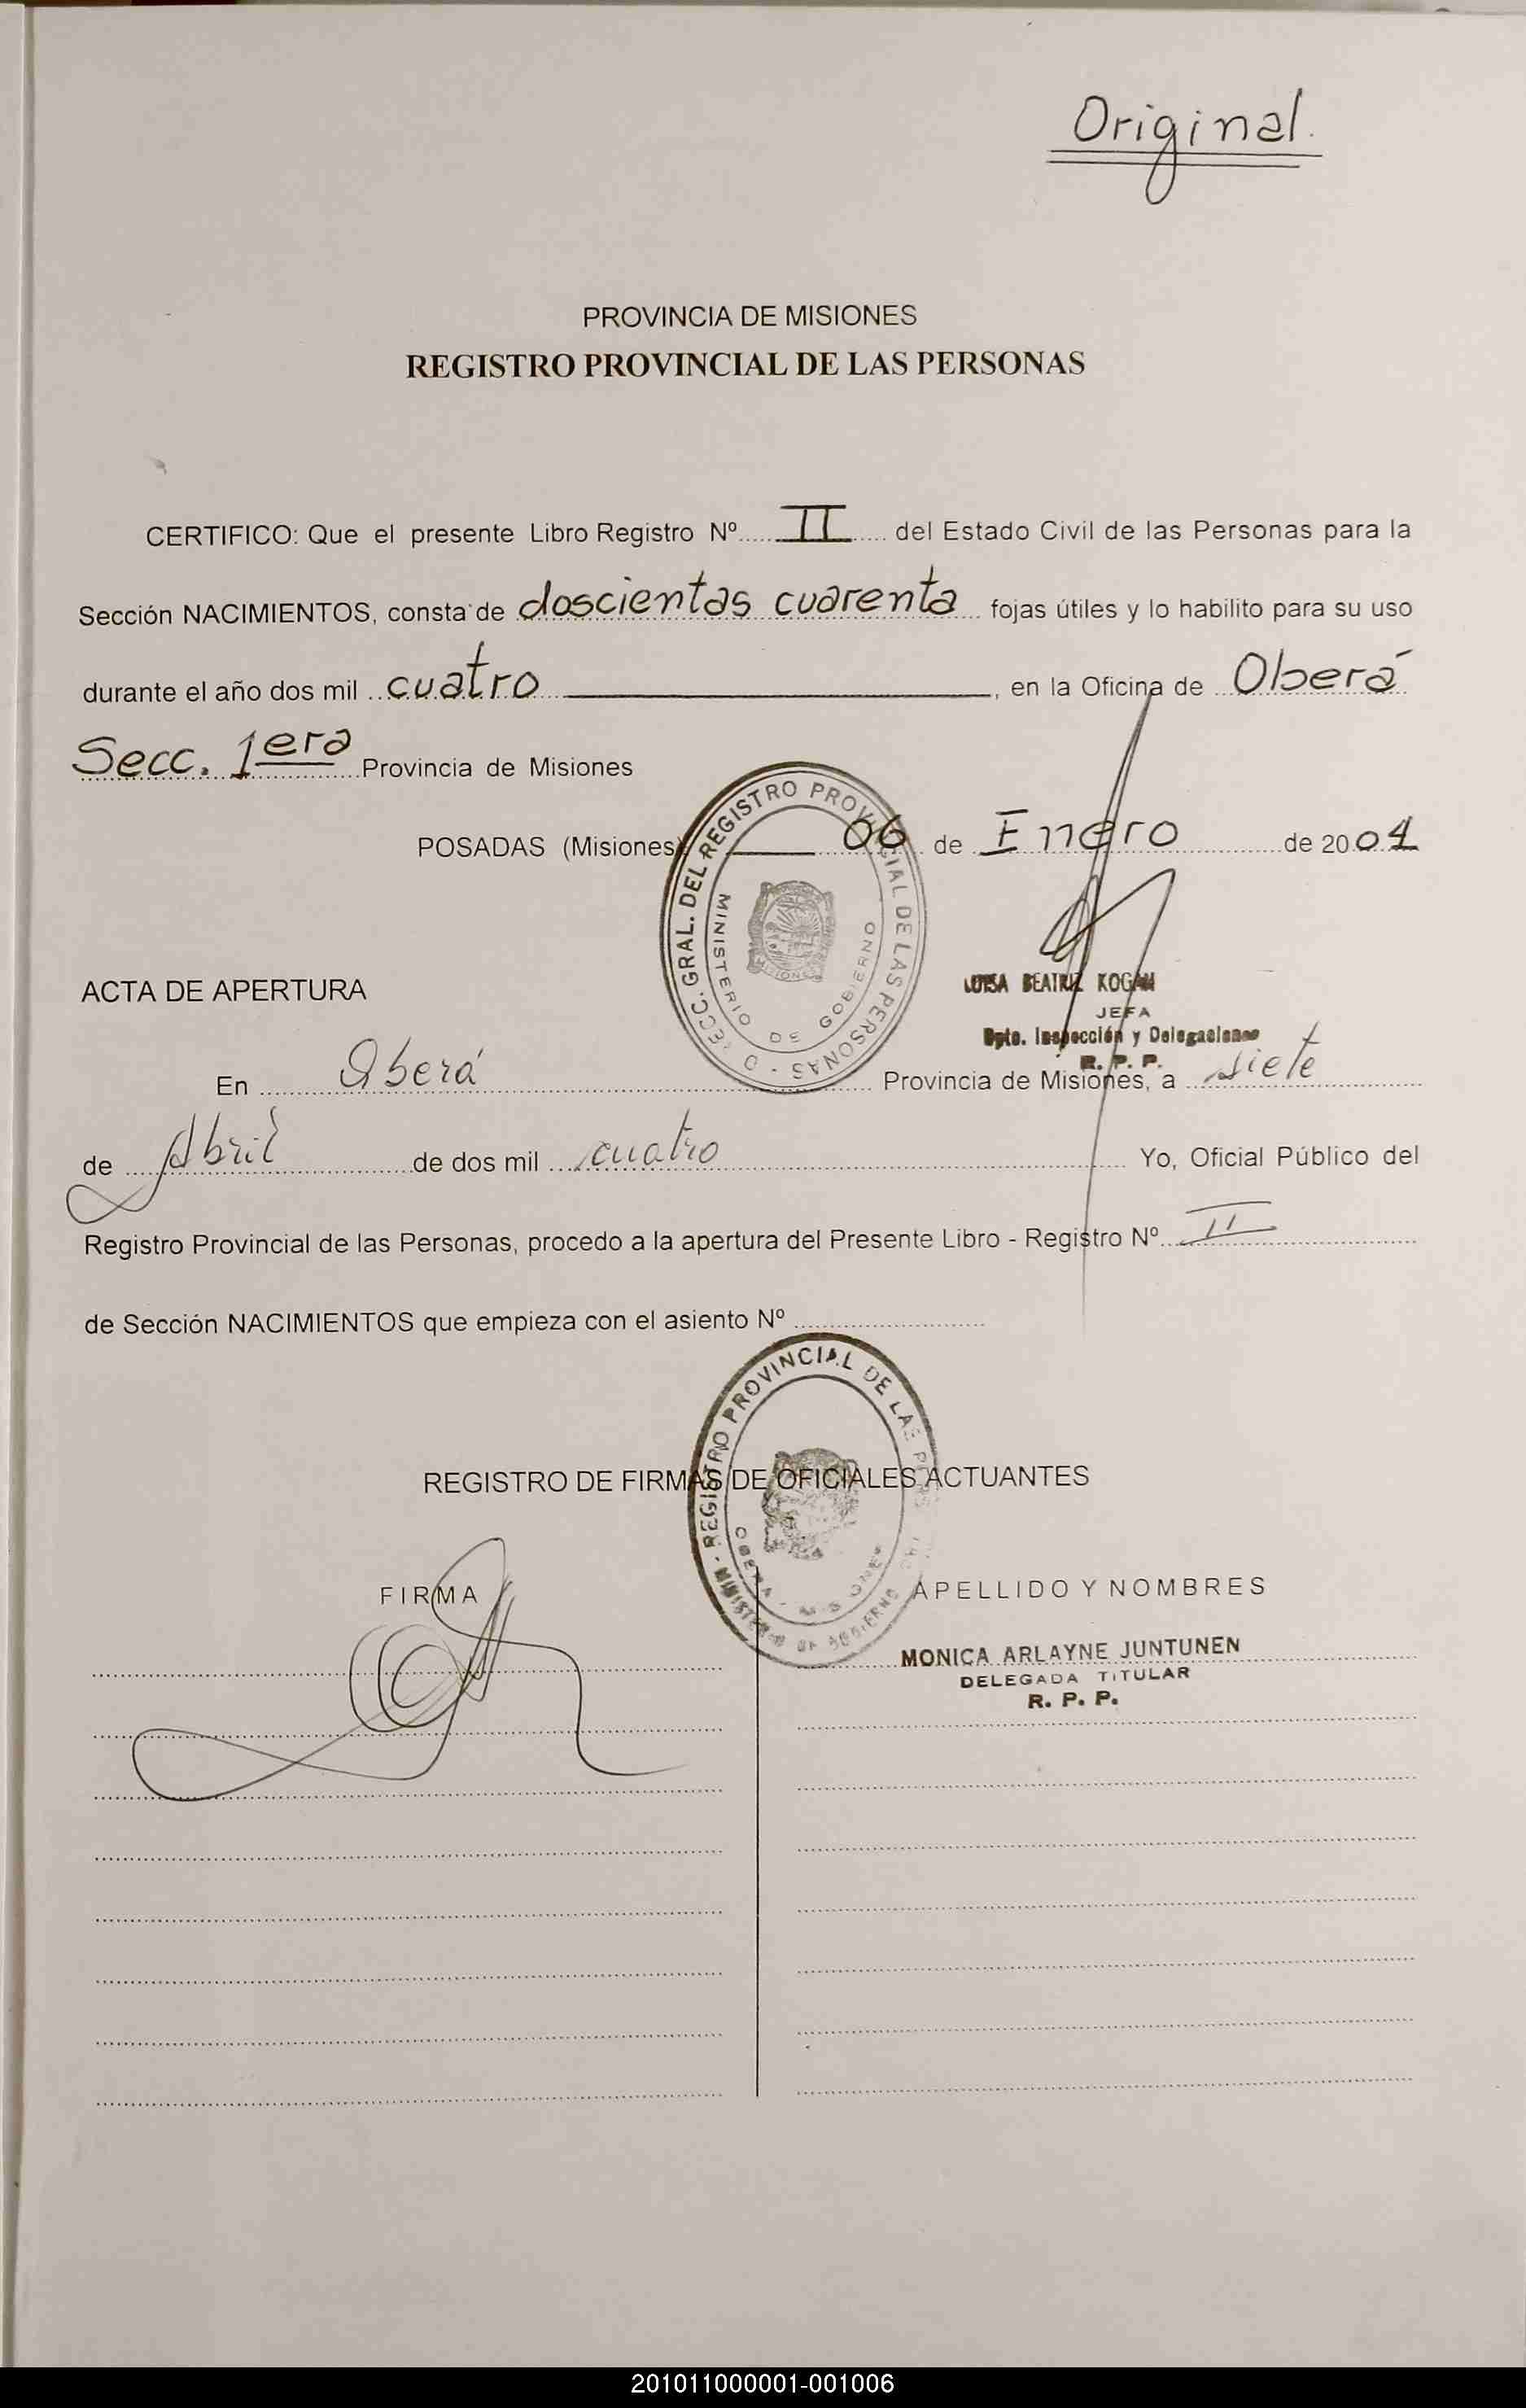 Original.
PROVINCIA DE MISIONES
REGISTRO PROVINCIAL DE LAS PERSONAS
CERTIFICO: Que el presente Libro Registro Nº II del Estado Civil de las Personas para la
Sección NACIMIENTOS, consta de doscientas cuarenta fojas útiles y lo habilito para su uso
durante el año dos mil cuatro, en la Oficina de Oberá
Secc. 1era Provincia de Misiones
POSADAS (Misiones) 06 de Enero de 2004
DIRECC. GRAL. DEL REGISTRO PROVINCIAL DE LAS PERSONAS
MINISTERIO DE GOBIERNO
MISIONES
LUISA BEATRIZ KOGAN
JEFA
Dpto. Inspección y Delegaciones
R. P. P.
ACTA DE APERTURA
En Oberá Provincia de Misiones, a siete
de Abril de dos mil cuatro Yo, Oficial Público del
Registro Provincial de las Personas, procedo a la apertura del Presente Libro - Registro Nº II
de Sección NACIMIENTOS que empieza con el asiento Nº
REGISTRO PROVINCIAL DE LAS PERSONAS
MINISTERIO DE GOBIERNO
OBERA - MISIONES
REGISTRO DE FIRMAS DE OFICIALES ACTUANTES
FIRMA APELLIDO Y NOMBRES
MONICA ARLAYNE JUNTUNEN
DELEGADA TITULAR
R. P. P.
201011000001-001006